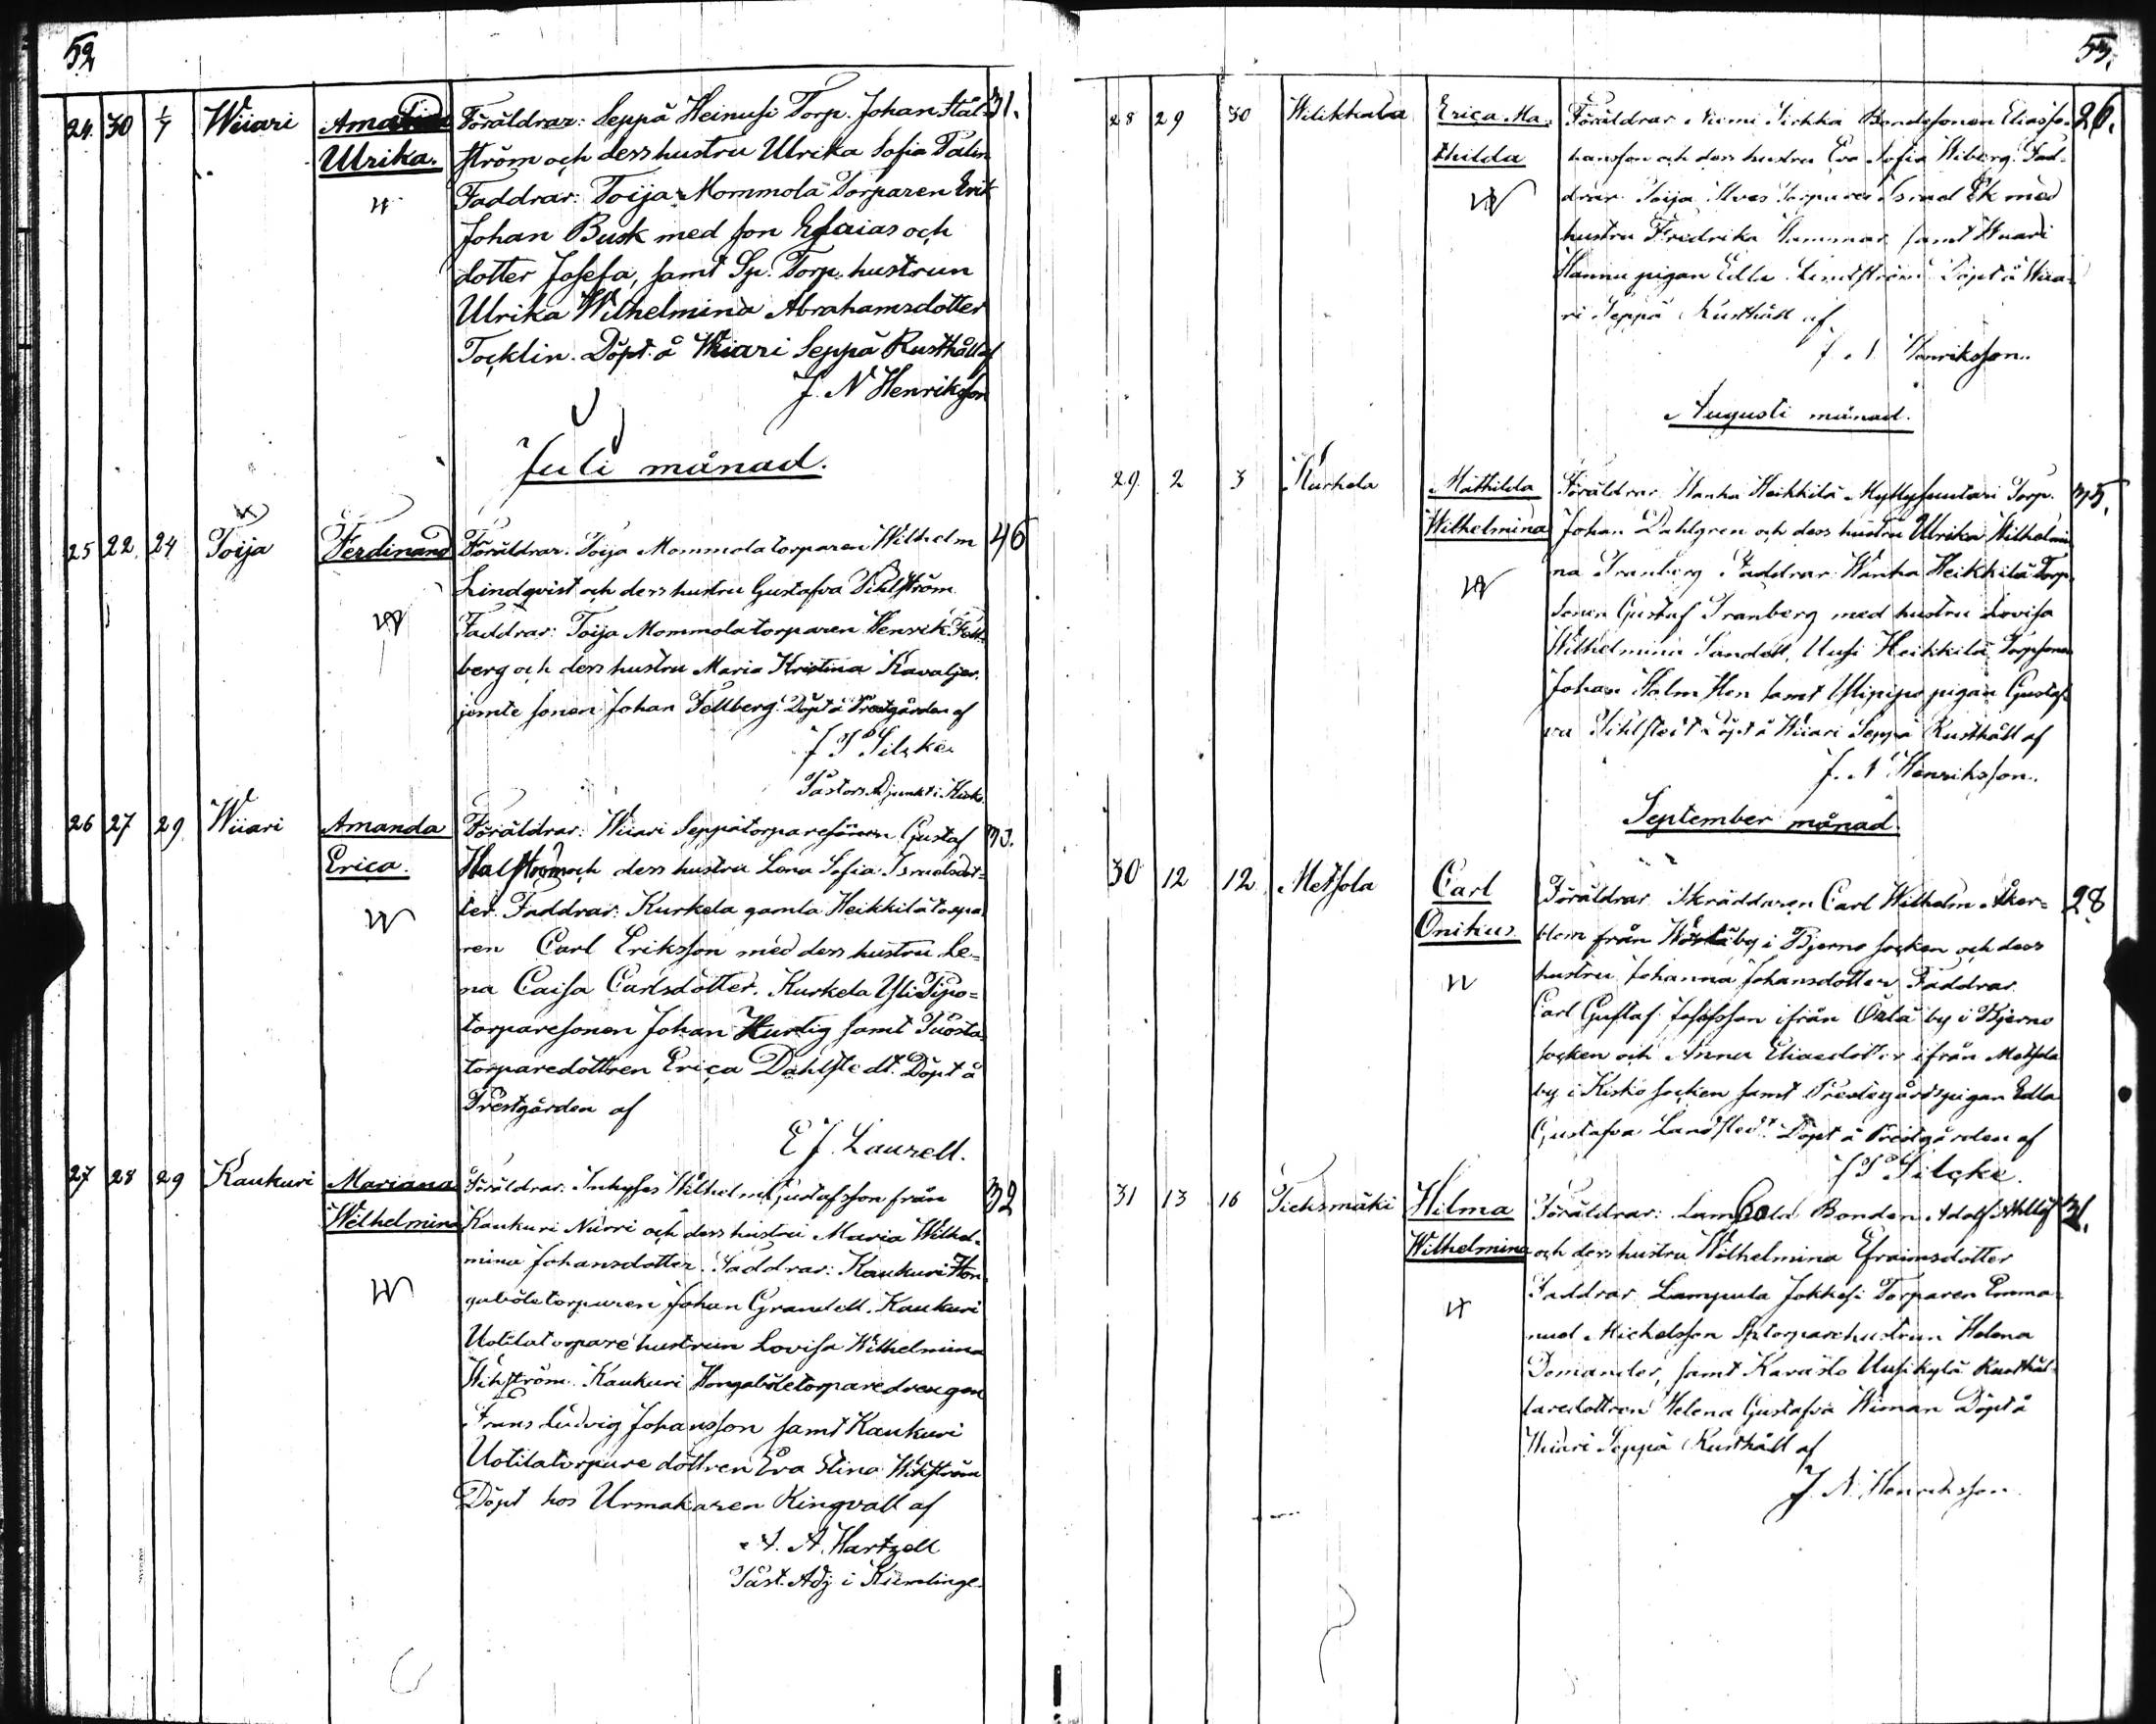 52
24. 30 1/7 Wiiari Amanda Föräldrar: Seppä Heinusi Torp. Johan Stål- 31.
Ulrika. ström och dess hustru Ulrika Sofia Palin
Faddrar: Toija Mommola Torparen Erik
Johan Busk med son Esaias och
dotter Josefa, samt Sp. Torp. hustrun
Ulrika Wilhelmina Abrahamsdotter
Tocklin. Döpt å Wiiari Seppä Rusthåll af
J. N Henriksson
Juli månad.
25 22. 24 Toija Ferdinand Föräldrar. Toija Mommola torparen Wilhelm 46
Lindqvist och dess hustru Gustafva Dihlström
Faddrar: Toija Mommola torparen Henrik Fell-
berg och dess hustru Maria Kristina Kavaljer.
jemte sonen Johan Fellberg. Döpt å Prestgården af
J P Silcke
Pastors Adjunkt i Kisko.
26 27 29. Wiiari Amanda Föräldrar: Wiiari Seppä torparesonen Gustaf 33.
Erica. Hallström och dess hustru Lena Sofia Israelsdot=
ter. Faddrar: Kurkela gamla Heikkilä torpa
ren Carl Eriksson med dess hustru Le=
na Caisa Carlsdotter. Kurkela Yli Pipo=
torparesonen Johan Hurtig samt Puosta
torparedottren Erica Dahlstedt. Döpt å
Prestgården af
E J. Laurell.
27 28 29 Kaukuri Mariana Föräldrar: Inhyses Wilhelm Gustafsson från 32
Wilhelmina Kaukuri Nurri och dess hustru Maria Wilhel-
mina Johansdotter. Faddrar: Kaukuri Hon
gaböletorparen Johan Grandell. Kaukuri
Uotilatorpare hustrun Lovisa Wilhelmina
Wikström. Kaukuri Hongaböletorparedrengen
Frans Ludvig Johansson samt Kaukuri
Uotilatorpare dottren Eva Stina Wikström
Döpt hos Urmakaren Ringvall af
A. A. Hartzell
Past. Adj i Kiimlinge.
53.
28 29 30 Wilikkala Erica Ma- Föräldrar Niemi Pirkka Bondesonen Elias Jo- 26.
thilda hansson och dess hustru Eva Sofia Wiberg. Fad-
drar Toija Ilves Torparen Israel Ek med
hustru Fredrika Hammar samt Wiiari
Hannu pigan Edla Lindström Döpt å Wiia-
ri Seppä Rusthåll af
J. N. Henriksson.
Augusti månad.
29. 2 3 Kurkela Mathilda Föräldrar Wanha Heikkilä Torp. 35.
Wilhelmina Johan Dahlgren och dess hustru Ulrika Wilhelmi
na Tranberg Faddrar Wanha Heikkilä Torp
sonen Gustaf Tranberg med hustru Lovisa
Wilhelmina Sandell, Uusi Heikkilä Torpsonen
Johan samt Ylipipo pigan Gustaf
va Dihlstedt Döpt å Wiiari Seppä Rusthåll af
J. N Henriksson.
September månad.
30 12 12 Metsola Carl Föräldrar Skräddaren Carl Wilhelm Åker= 28
Onikus. blom från by i Bjerno socken och dess
hustru Johanna Johansdotter Faddrar.
Carl Gustaf Josefsson ifrån by i Bjerno
socken och Anna Eliaedotter ifrån Metsola
by i Kisko socken samt Prestegårdspigan Edla
Gustafva Landstedt Döpt å Prestgården af
J P Silcke.
31 13 16 Tieksmäki Hilma Föräldrar: Lampola Bonden Adolf 31.
Wilhelmina och dess hustru Wilhelmina Efraimsdotter
Faddrar Lampula Jokkesi Torparen Emma-
nuel Michelsson Sp torparehustrun Helena
Domander, samt Karasto Uusikylä Rusthål-
laredottren Helena Gustafva Wiman Döpt å
Wiiari Seppä Rusthåll af
J. N. Henriksson